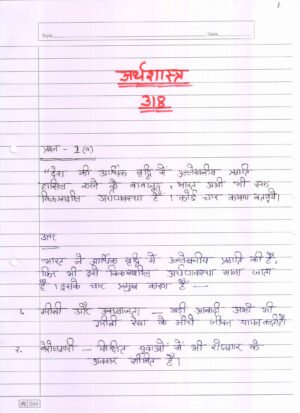 1
Date
अर्थशास्त्र
318
प्रश्न - 1 (a)
"देश की आर्थिक वृद्धि में उल्लेखनीय प्रगति
हासिल करने के बावजूद, भारत अभी भी एक
विकासशील अर्थव्यवस्था है। कोई चार कारण बताइये।
उत्तर
भारत ने आर्थिक वृद्धि में उल्लेखनीय प्रगति की है,
फिर भी इसे विकासशील अर्थव्यवस्था माना जाता
है। इसके चार प्रमुख कारण है -
1. गरीबी और असमानता - बड़ी आबादी अभी भी
गरीबी रेखा के नीचे जीवन यापन करती है।
२. बेरोजगारी - शिक्षित युवाओं में भी रोजगार के
अवसर सीमित है।